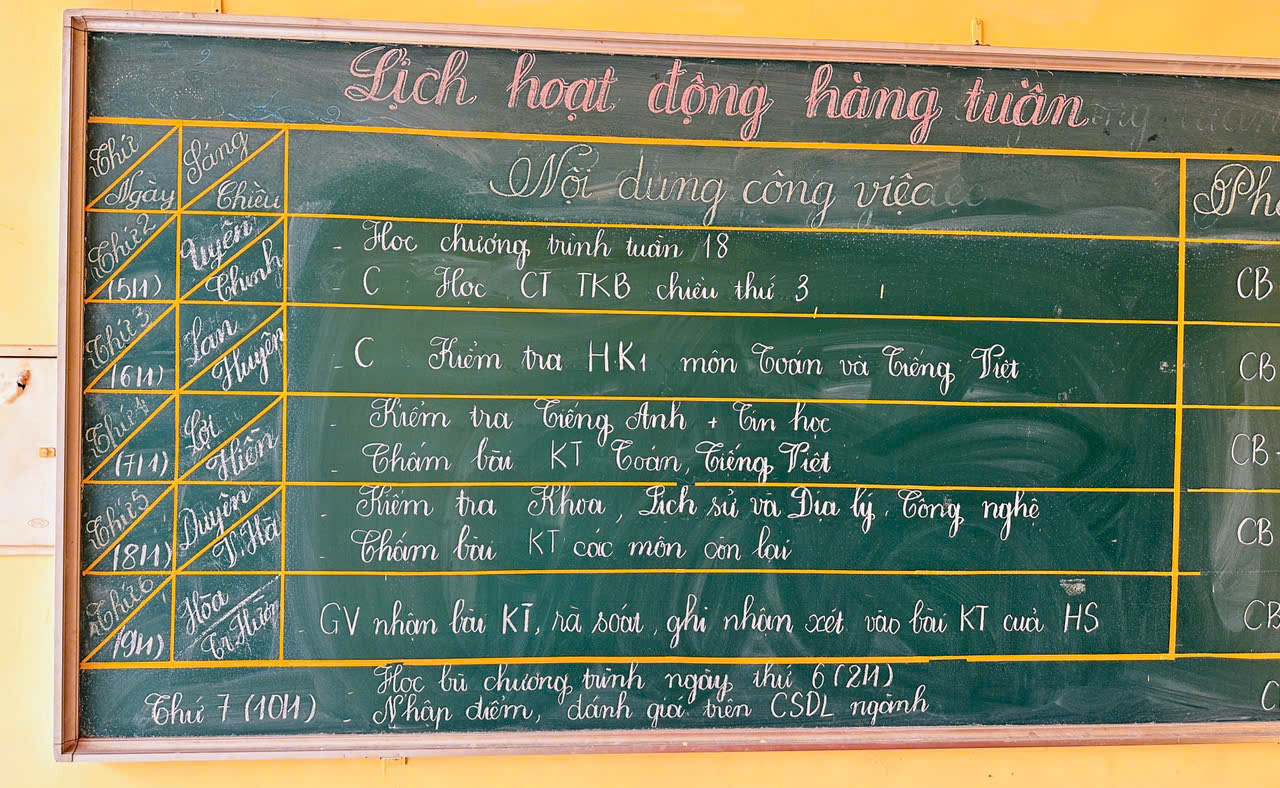 Lịch hoạt động hàng tuần
Thứ Ngày Sáng Chiều Nội dung công việc
Thứ 2 (5/1) Uyên Chinh - Học chương trình tuần 18 CB
- C : Học CT TKB chiều thứ 3
Thứ 3 (6/1) Lan Huyền - C Kiểm tra HK1 môn Toán và Tiếng Việt CB
Thứ 4 (7/1) Lợi Hiền - Kiểm tra Tiếng Anh + Tin học CB
- Chấm bài KT Toán, Tiếng Việt
Thứ 5 (8/1) Duyên V.Hà - Kiểm tra Khoa, Lịch sử và Địa lý, Công nghệ CB
- Chấm bài KT các môn còn lại
Thứ 6 (9/1) Hòa Tr.Hương - GV nhận bài KT, rà soát, ghi nhận xét vào bài KT của HS CB
Thứ 7 (10/1) - Học bù chương trình ngày thứ 6 (2/1)
- Nhập điểm, đánh giá trên CSDL ngành